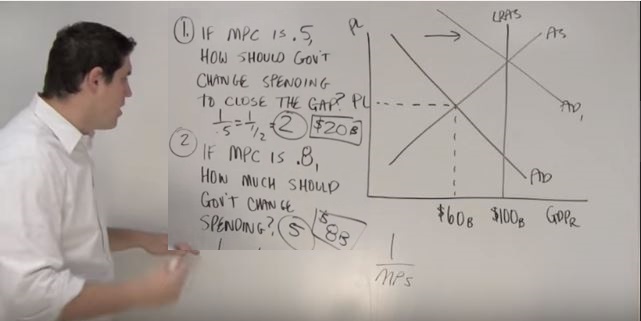 1. IF MPC IS .5,
HOW SHOULD GOV'T
CHANGE SPENDING
TO CLOSE THE GAP?
1/.5 = 1/1/2 = 2 $20B
2 IF MPC IS .8,
HOW MUCH SHOULD
GOV'T CHANGE
SPENDING? 5 $8B
PL
LRAS
AS
PL
AD1
AD
$60B $100B GDPR
1
MPS